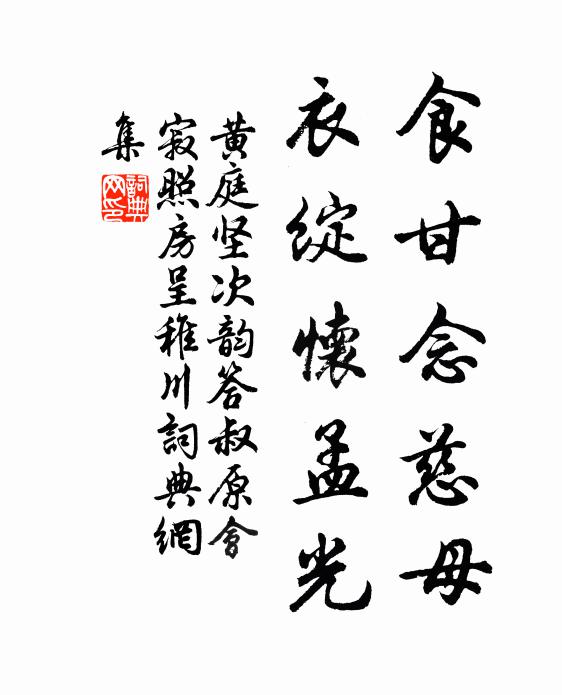 食甘念慈母
衣綻懷孟光
黄庭坚次韵答叔原會
寂照房呈稚川詞典網
集
詞典
网印